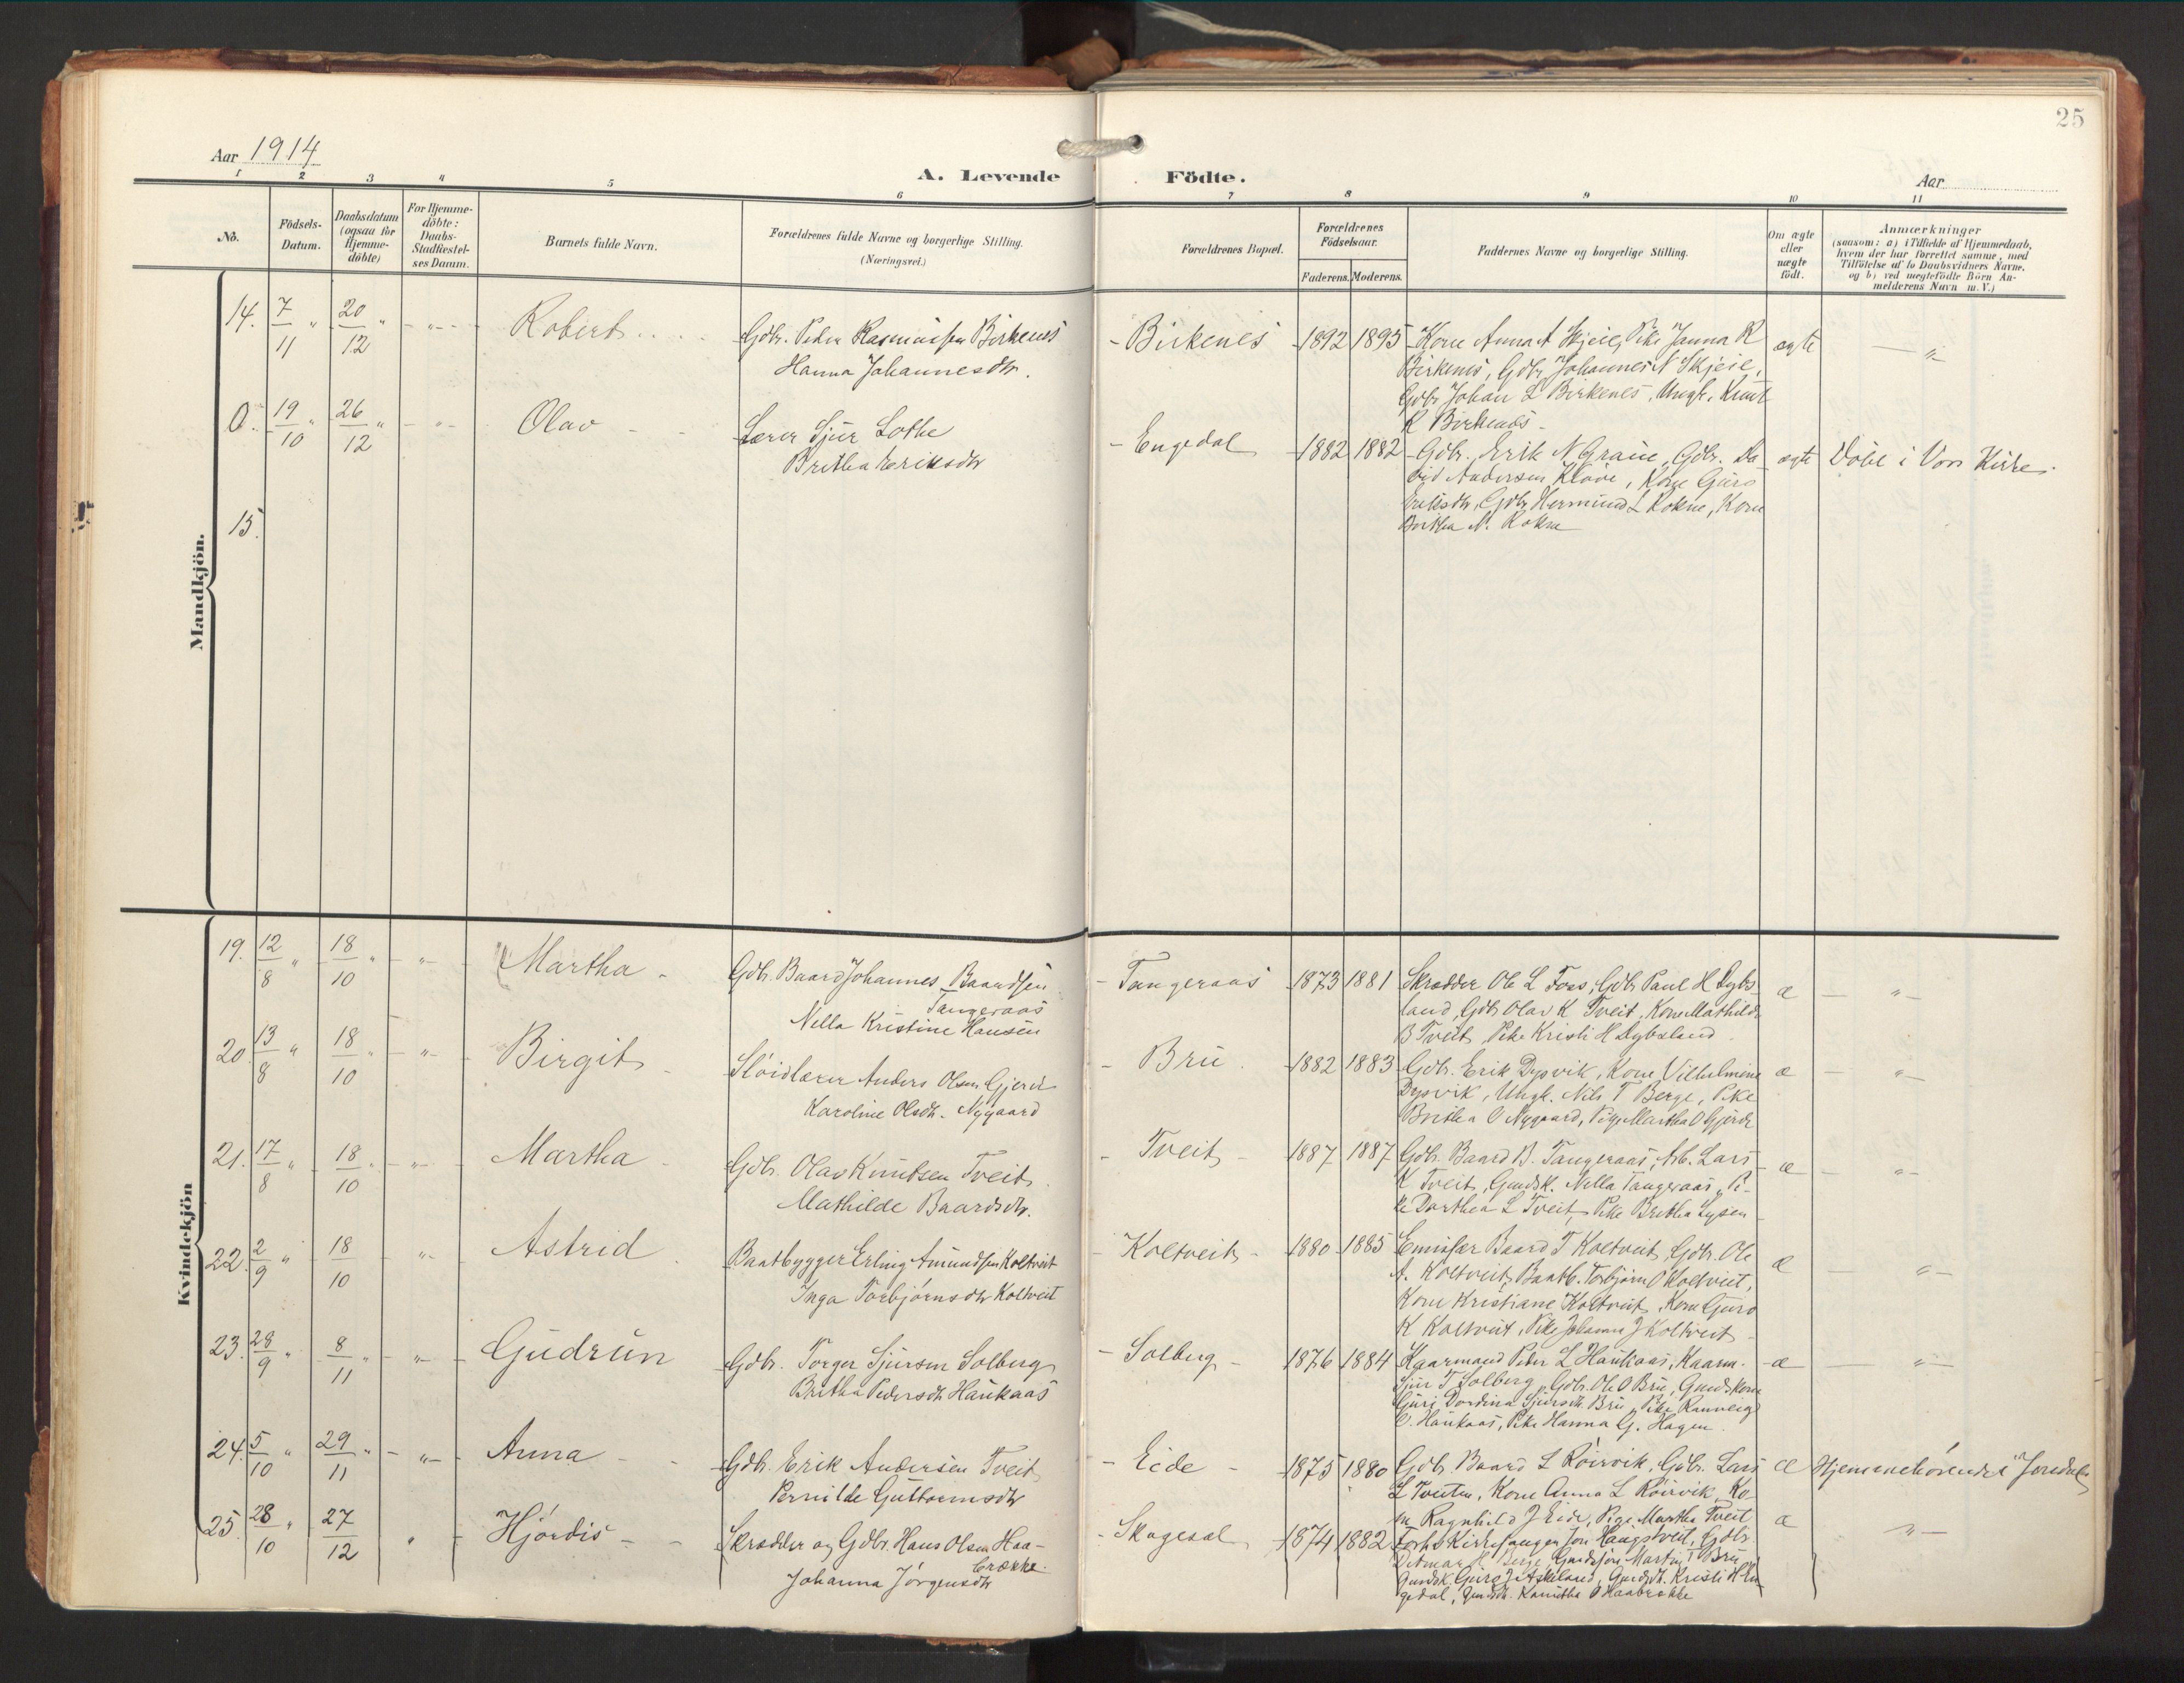 25
Aar 1914
A. Levende Födte.
Aar
1 2 3 4 5 6 7 8 9 10 11
No.
Födsels-
Datum.
Daabsdatum
(ogsaa for
Hjemme-
döbte)
For Hjemme-
döbte:
Daabs-
Stadfæstel-
ses Datum.
Barnets fulde Navn.
Forældrenes fulde Navne og borgerlige Stilling.
(Næringsvei.)
Forældrenes Bopæl.
Forældrenes
Födselsaar.
Faderens. Moderens.
Faddernes Navne og borgerlige Stilling.
Om ægte
eller
uægte
födt.
Anmærkninger
(saasom: a) i Tilfælde af Hjemmedaab,
hvem der har forrettet samme, med
Tilföielse af to Daabsvidners Navne.
og b) ved uægtefödte Börn An-
melderens Navn m. V.)
Mandkjön.
14. 7/11 " 20/12 " - " - Robert
Gdbr. Peder Rasmussen Birkenes
Hanna Johannesdtr.
- Birkenes 1892 1895
Kone Anna A Skjeie, Pike Janna R
Birkenes, Gdbr Johannes N Skjeie,
Gdbr Johan L Birkenes, Ungk. Knut
R Birkenes
ægte - " -
0. 19/10 " 26/12 " - " - Olav
Lærer Sjur Lothe
Britha Eriksdtr
- Engedal 1882 1882
Gdbr. Erik N Graue, Gdbr. Da-
vid Andersen Kløve, Kone Guro
Eriksdtr, Gdbr Hermund L Rokne, Kone
Britha N. Rokne
ægte Döbt i Vos Kirke.
15.
Kvindekjön
19. 12/8 " 18/10 " - " - Martha -
Gdbr. Baard Johannes Baardsen
Tangeraas
Nella Kristine Hansen
- Tangeraas 1873 1881
Skrædder Ole L Foss, Gdbr Paul H Dybs-
land, Gdbr Olav K Tveit, Kone Mathilde
B Tveit, Pike Kristi H Dybsland
æ - " -
20. 13/8 " 18/10 " - " - Birgit
Slöidlærer Anders Olsen Gjerde
Karoline Olsdtr. Nygaard
- Bru 1882 1883
Gdbr. Erik Dysvik, Kone Vilhelmine
Dysvik, Ungk. Nils T Berge, Pike
Britha O Nygaard, Pige Martha O Gjerde
æ - " -
21. 17/8 " 18/10 " - " - Martha
Gdbr. Olav Knutsen Tveit
Mathilde Baardsdtr.
- Tveit 1887 1887
Gdbr. Baard B. Tangeraas, Arb. Lars
K Tveit, Gaardsk. Nella Tangeraas, Pi-
ke Dorthea L Tveit, Pike Britha Lysen
æ - " -
22. 2/9 " 18/10 - " - Astrid
Baatbygger Erling Amundsen Koltveit
Inga Torbjørnsdtr Koltveit
- Koltveit 1880 1885
Emissær Baard T Koltveit, Gdbr. Ole
A. Koltveit, Baatb. Torbjørn O Koltveit,
Kone Kristiane Koltveit, Kone Guro
K Koltveit, Pike Johanna J Koltveit
æ - " -
23. 28/9 " 8/11 " - " - Gudrun
Gdbr. Torger Sjursen Solberg
Britha Pedersdtr Haukaas
- Solberg 1876 1884
Kaarmand Peder L Haukaas, Kaarm.
Sjur T Solberg, Gdbr. Ole O Bru, Gaardskone
Guri Dordina Sjursdtr Bru, Pike Rannveig
Haukaas, Pike Hanna G. Hagen.
æ - " -
24. 5/10 " 29/11 " - " - Anna -
Gdbr. Erik Andersen Tveit
Pernilde Guttormsdtr
- Eide 1875 1880
Gdbr. Baard L Röirvik, Gdbr. Lars
L Tveiten, Kone Anna L Röirvik, Ko-
ne Ragnhild J Eide, Pige Martha Tveit
æ Hjemmehörende i Jondal
25. 28/10 " 27/12 " Hjördis -
Skrædder og Gdbr. Hans Olsen Haa-
brække.
Johanna Jörgensdtr
- Skogesal 1874 1882
Forhv. Kirkesanger Jon Haugstveit, Gdbr
Ditmar K Berge, Gaardsfon Martin T Bru
Gaardsk. Guro J Askeland, Gaardsdtr. Kristi H En-
gedal, Gaardsdtr. Kamitha O Haabrække
æ - " -